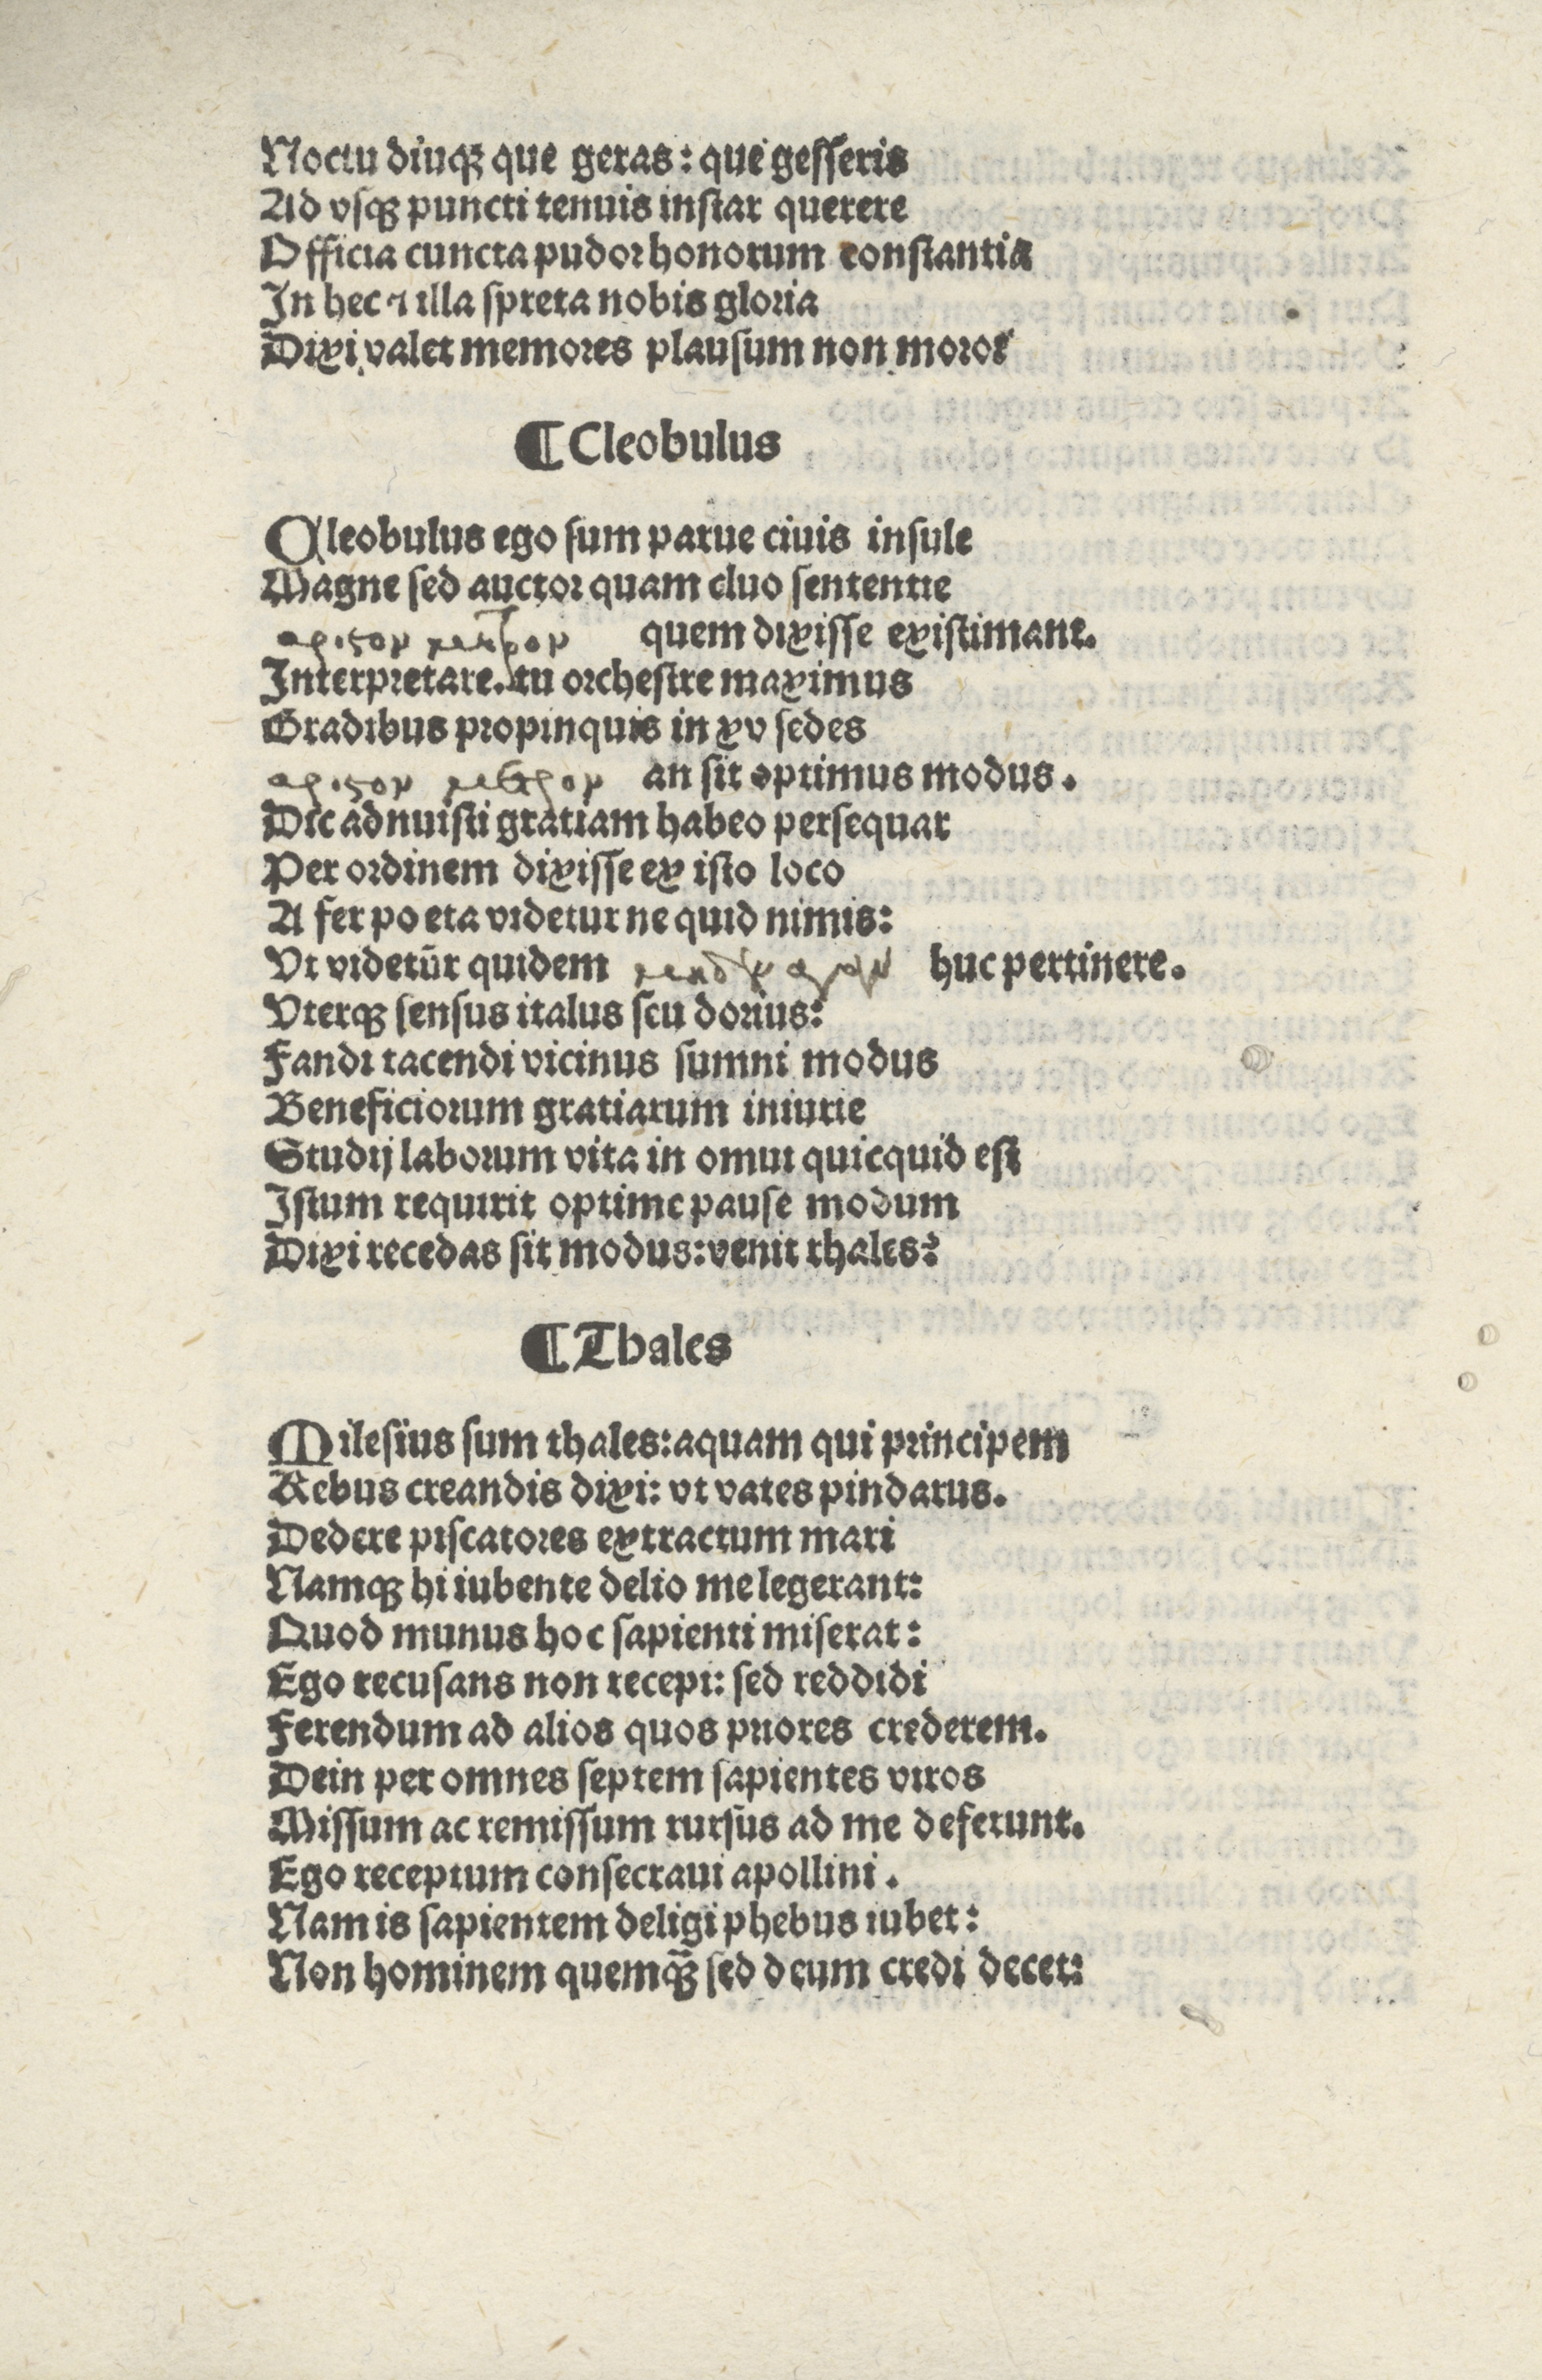 Noctu diuqꝫ que geras: que gesseris
Ad vsqꝫ puncti tenuis instar querere
Officia cuncta pudor honorum constantia
In hec ⁊ illa spreta nobis gloria
Dixi valet memores plausum non moror
¶ Cleobulus
Cleobulus ego sum parue ciuis insule
Magne sed auctor quam cluo sententie
αριϛον μετρον quem dixisse existimant.
Interpretare. tu orchestre maximus
Gradibus propinquis in xv sedes
αριϛον μετρον an sit optimus modus.
Dic adnuisti gratiam habeo persequar
Per ordinem dixisse ex isto loco
A fer po eta videtur ne quid nimis:
Vt videtūr quidem μηδεν αγαν huc pertinere.
Vterqꝫ sensus italus seu dorius:
Fandi tacendi vicinus sumni modus
Beneficiorum gratiarum iniurie
Studij laborum vita in omui quicquid est
Istum requirit optime pause modum
Dixi recedas sit modus: venit thales:
¶ Thales
Milesius sum thales: aquam qui principem
Rebus creandis dixi: vt vates pindarus.
Dedere piscatores extractum mari
Namqꝫ hi iubente delio me legerant:
Quod munus hoc sapienti miserat:
Ego recusans non recepi: sed reddidi
Ferendum ad alios quos priores crederem.
Dein per omnes septem sapientes viros
Missum ac remissum rursus ad me deferunt.
Ego receptum consecraui apollini.
Nam is sapientem deligi phebus iubet:
Non hominem quemqꝫ̃ sed deum credi decet: